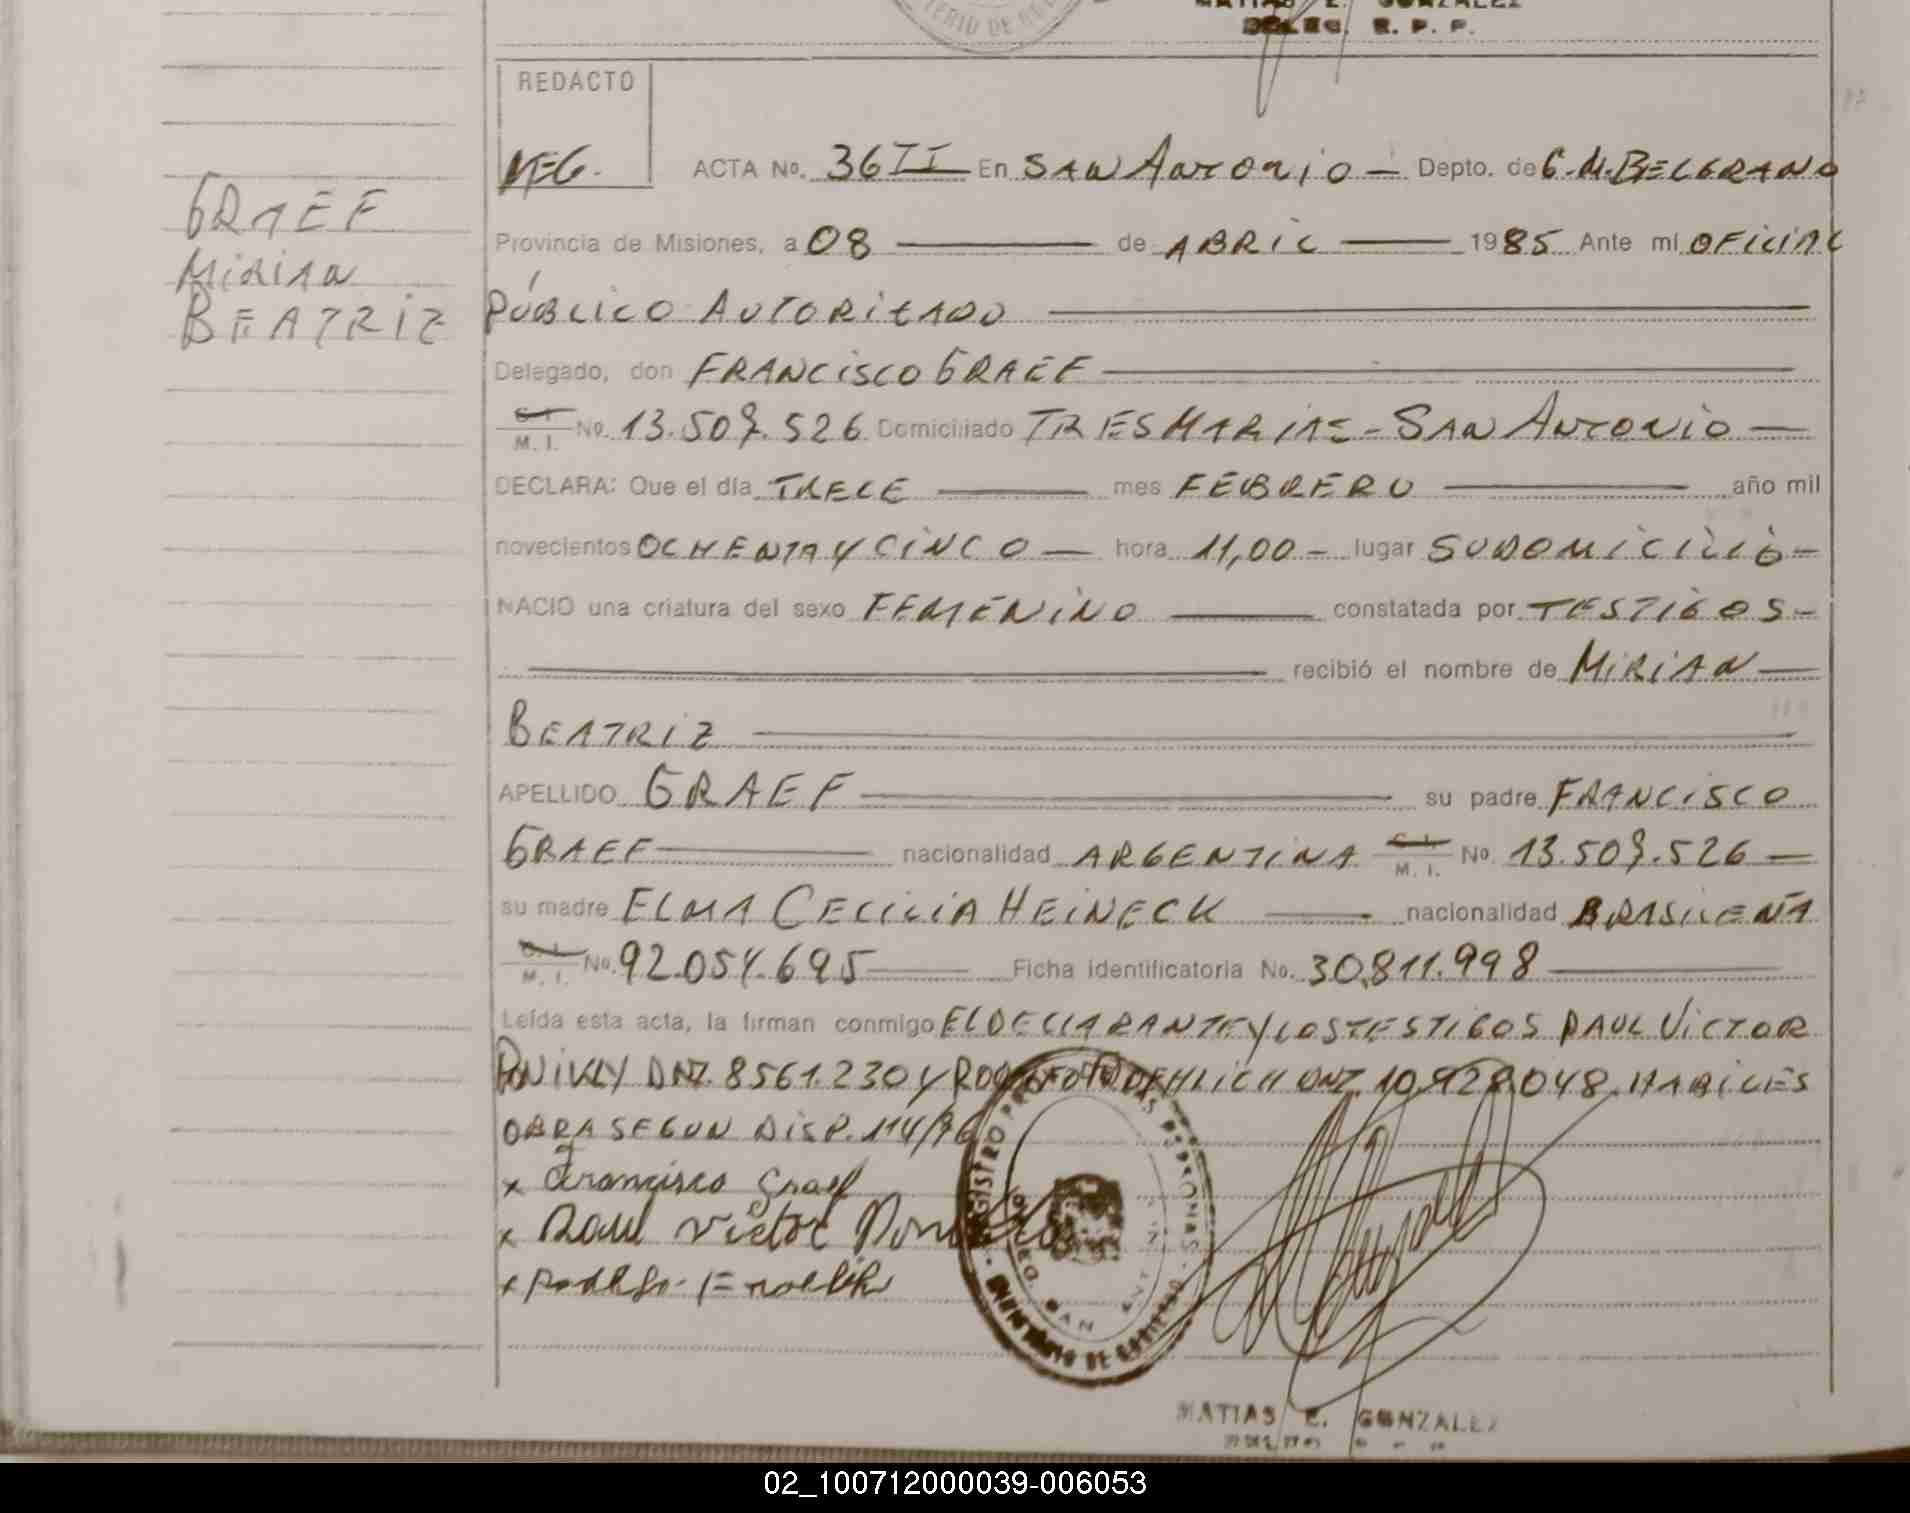 MATIAS E. GONZALEZ
DELEG. R. P. P.
REDACTO
ACTA No. 36 II En SAN ANTONIO - Depto. de G.M. BELGRANO
GRAEF
MIRIAN
BEATRIZ
Provincia de Misiones, a 08 de ABRIL 1985 Ante mí OFICIAL
PÚBLICO AUTORIZADO
Delegado, don FRANCISCO GRAEF
C. I. M. I. No. 13.509.526 Domiciliado TRES MARIAS - SAN ANTONIO
DECLARA: Que el día TRECE mes FEBRERO año mil
novecientos OCHENTA Y CINCO hora 11,00 - lugar SU DOMICILIO -
NACIO una criatura del sexo FEMENINO constatada por TESTIGOS -
recibió el nombre de MIRIAN
BEATRIZ
APELLIDO GRAEF su padre FRANCISCO
GRAEF nacionalidad ARGENTINA C. I. M. I. No. 13.509.526
su madre ELMA CECILIA HEINECK nacionalidad BRASILEÑA
C. I. M. I. No. 92.054.695 Ficha identificatoria No. 30.811.998
Leída esta acta, la firman conmigo EL DECLARANTE Y LOS TESTIGOS RAUL VICTOR
DNI. 8561.230 Y DNI. 10.928.048. HABILES
OBRA SEGUN DISP. 114/76
x Francisco Graef
x Raul Victor
x
MATIAS E. GONZALEZ
02_100712000039-006053